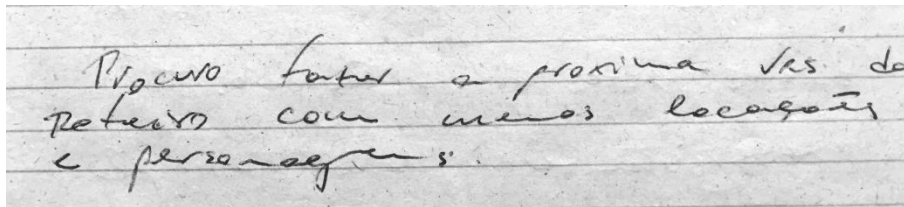 Procuro fazer a proxima vrs do
Roteiro com menos locações
e personagens.